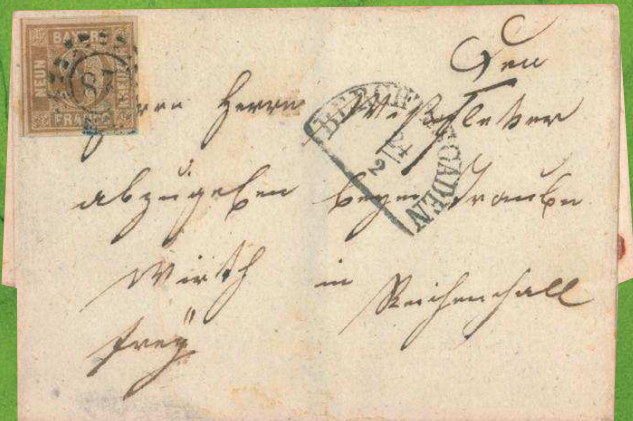 BAYERN
NEUN
KREUZER
FRANCO
87
BERCHTESGADEN
24
2
Den
Herrn
abzugeben beym Trauben
Wirth in Reichenhall
frey